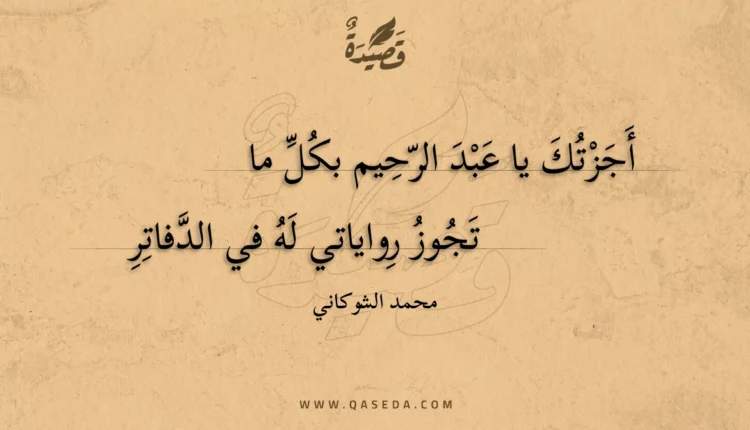 قَصِيْدَةٌ
أَجَزْتُكَ يا عَبْدَ الرّحِيم بكُلِّ ما
تَجُوزُ رِواياتي لَهُ في الدَّفاتِرِ
محمد الشوكاني
WWW.QASEDA.COM